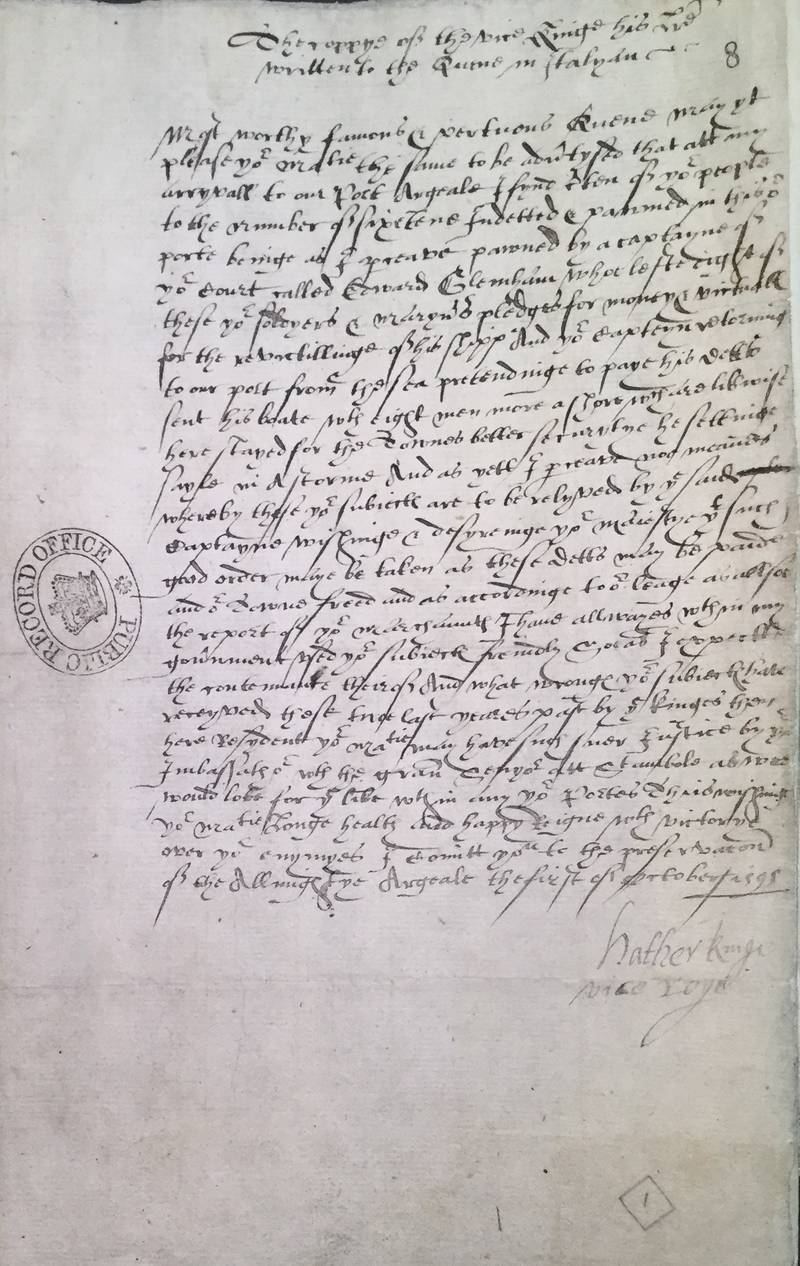 The coppye of the vice Kinge his Lre
written to the Quene in Italyan
8
Most worthy famous & vertuous Quene may yt
please yor Matie the same to be advtysed that att my
arryvall to our Port Argeale I fynd xten of yor people
to the number of sixtene Indetted & pawned in this or
porte beinge as I pceave pawned by a captayne of
yor Court called Edward Glemham who lefte eight of
these yor soldyers & maryners pledges for money & victuall
for the revictillinge of his shipp And yor Captayn retorning
to our port from the sea pretendinge to paye his detts
sent his boate wth eight men more a shore wch are likwise
here stayed for the Townes better securytye he settinge
sayle in a storme And as yett I pceave noe meanes
whereby those yor subiects are to be relyved by ye said
Captayne wishinge & desyreinge yor Maiestye yt such
good order maye be taken as these detts may be paide
and or Towne freed and as accordinge to or leage as allso
the report of yor marchaunts I have allwayes wthin my
goverment used yor subiects frendly so as I expecte
the contenuance therof And what wronge yor subiects have
receyved these two last yeares past by ye kinges then
here Resydent yor Matie may have such further Justice by yor
Imbassathor wth the grand Senyor att Stambole as we
would loke for ye like wthin any yor Portes Thus wishinge
yor Matie Longe health and happy Reigne wth victorye
over yor enymyes I Comitt you to the preservacon
of the Allmightye Argeale the first of October 1591
hather kinge
vice roye
PUBLIC RECORD OFFICE
1